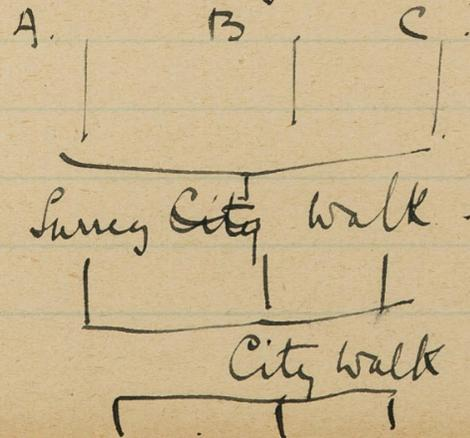 A. B C.
Surrey City Walk.
City Walk